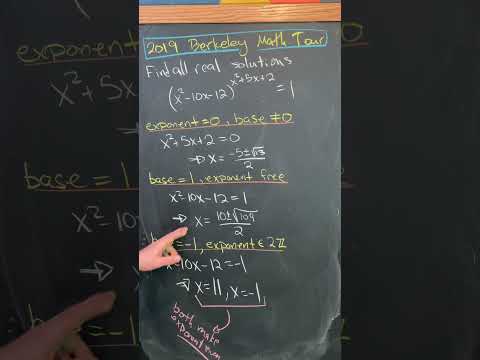 2019 Berkeley Math Tour
Find all real solutions
(x²-10x-12)^(x²+5x+2) = 1
exponent=0, base ≠0
x²+5x+2=0
→ x = (-5±√13)/2
base = 1, exponent free
x²-10x-12=1
→ x = (10±√109)/2
=-1, exponent ∈ 2ℤ
-10x-12=-1
→ x=11, x=-1
both make
exponent even